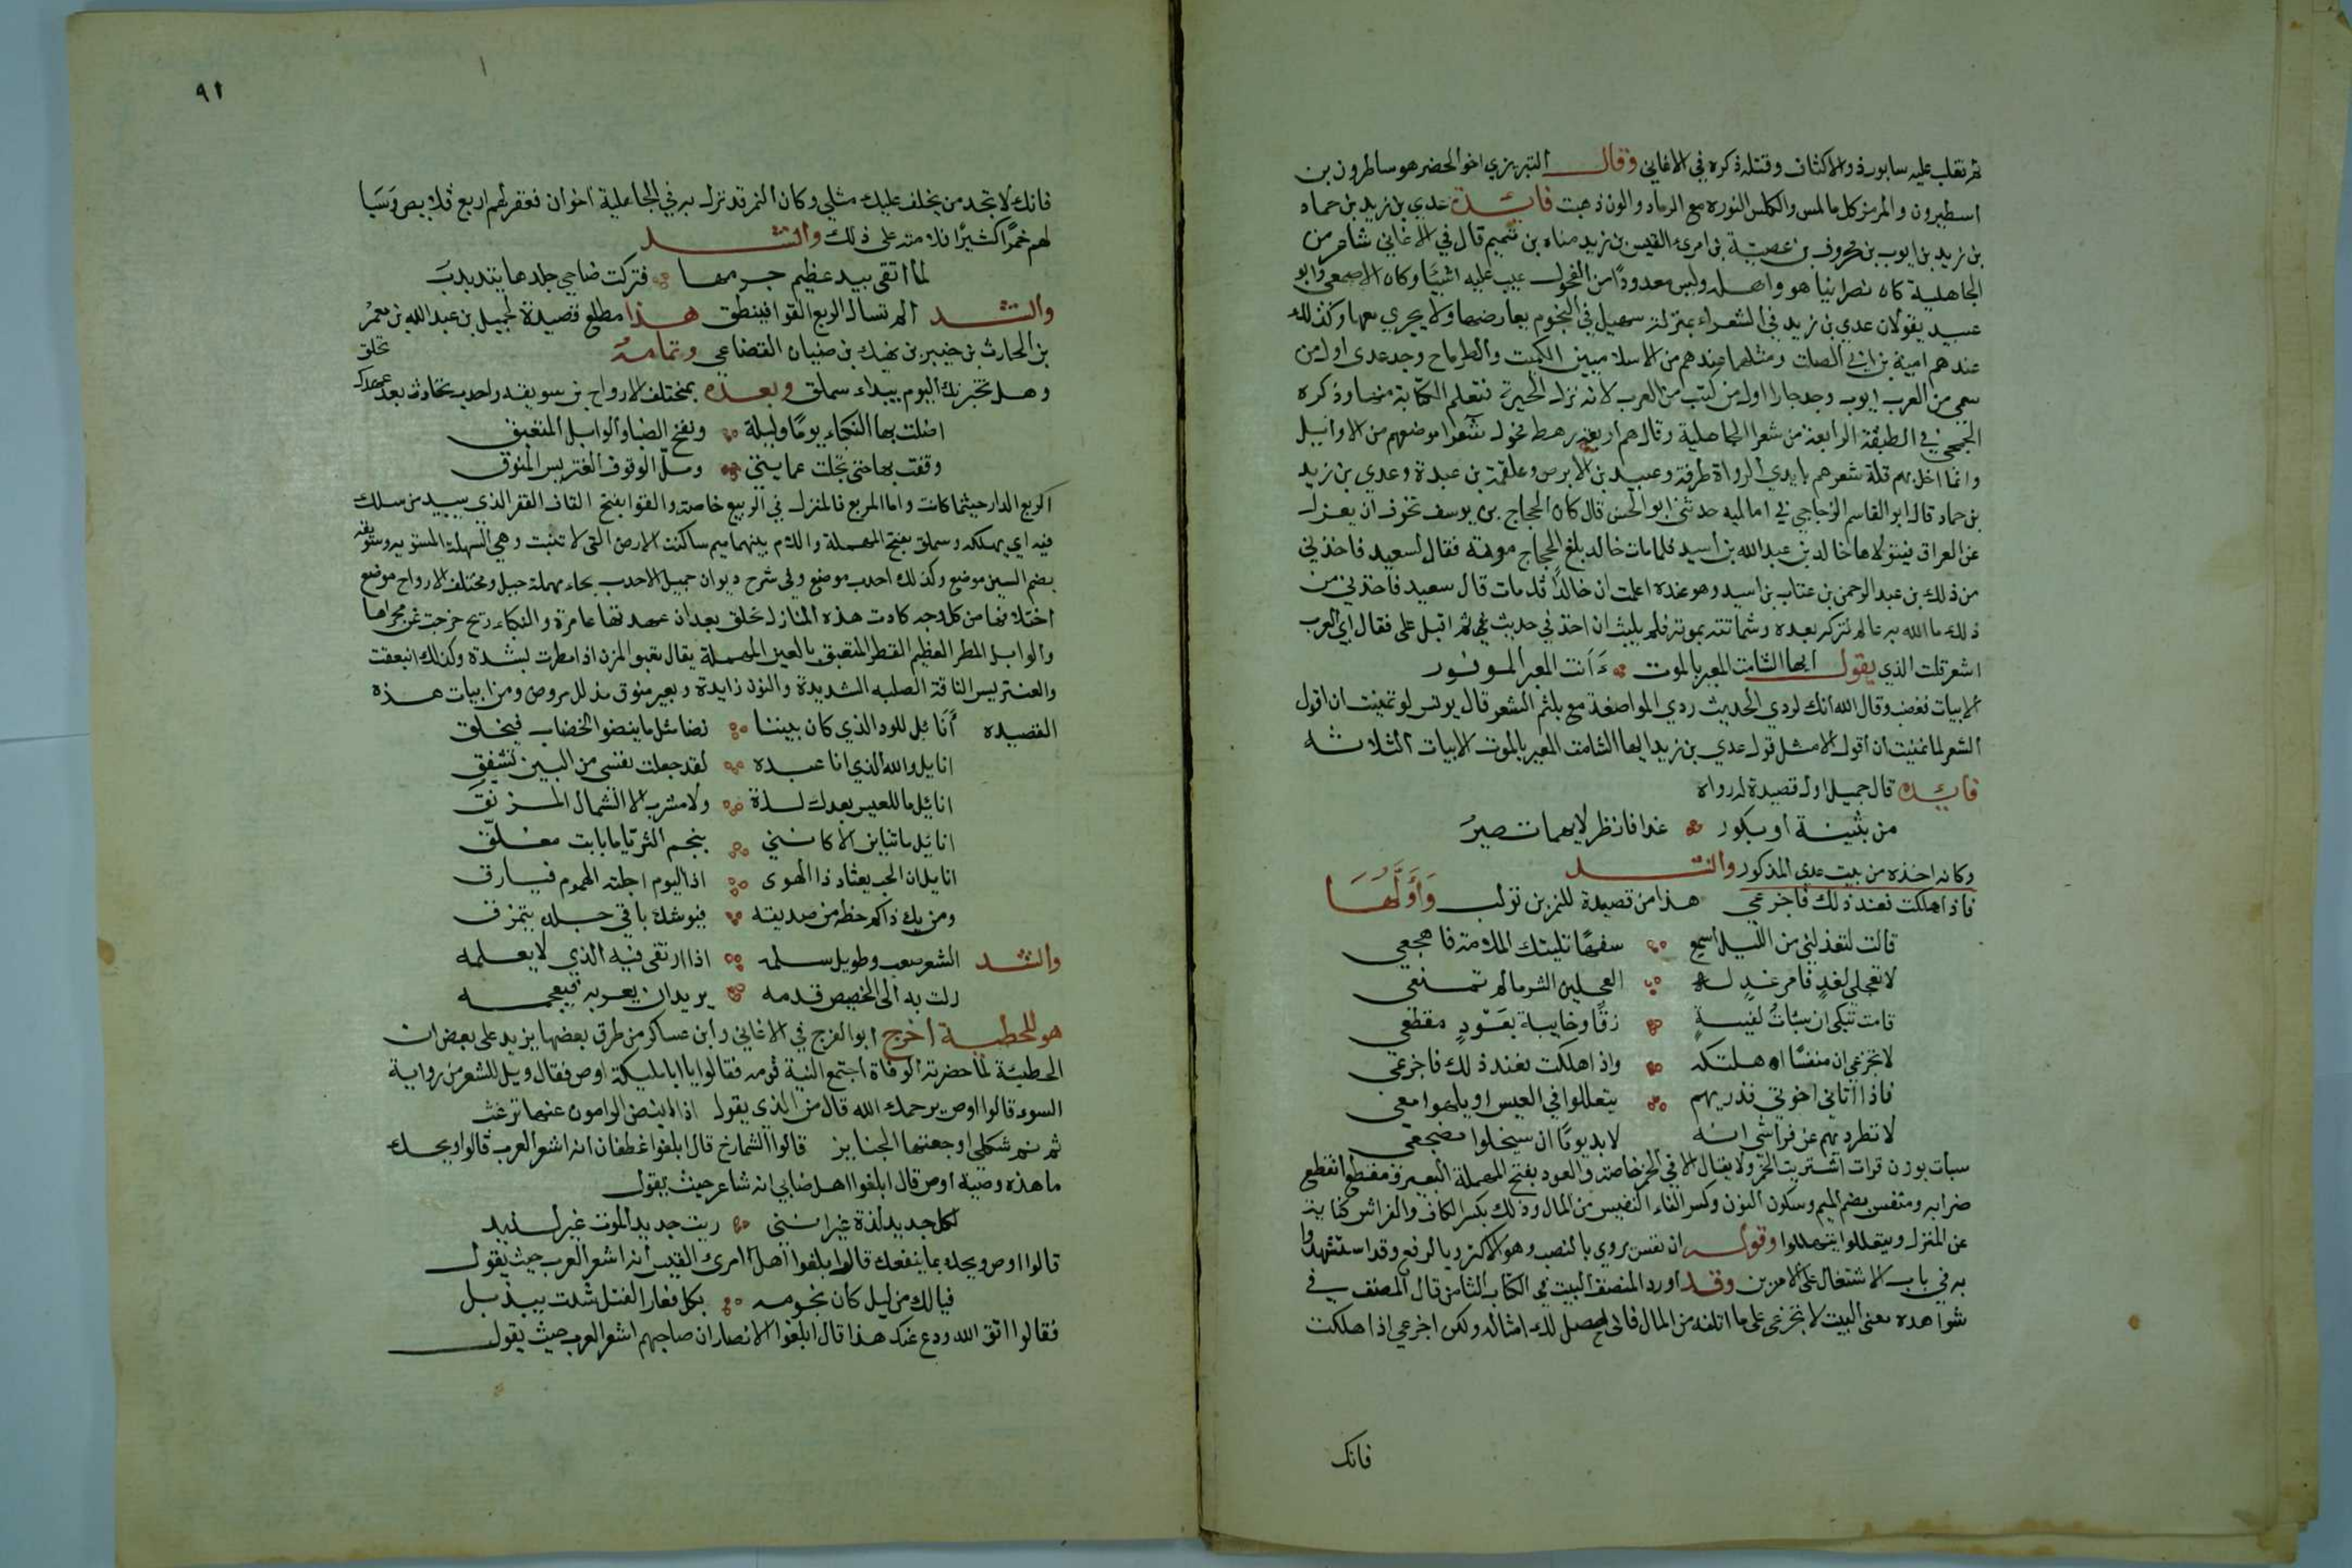 ثم تغلب عليه سابور ذو الاكتاف وقتله ذكره في الاغاني وقال التبريزي اخو الحضر هو ساطرون بن
اسطيرون والمرمر كل مالمس والكلس النوره مع الرماد والون ذهبت فايدة عدي بن زيد بن حماد
بن زيد بن ايوب بن محروف بن عصية بن امرئ القيس بن زيد مناه بن تميم قال في الاغاني شاعر من
الجاهلية كان نصرانيا هو واهله وليس معدودًا من الفحول عيب عليه اشيا وكان الاصمعي وابو
عبيد يقولان عدي بن زيد في الشعراء بمنزلة سهيل في النجوم يعارضها ولا يجري معها وكذلك
عندهم امية بن ابي الصلت ومثلهما عندهم من الاسلاميين الكميت والطرماح وجد عدي اول من
سمي من العرب ايوب وجد حمارا اول من كتب من العرب لانه نزل الحيرة فتعلم الكتابة منها وذكره
الجمحي في الطبقة الرابعة من شعرا الجاهلية وقال هم اربعة رهط فحول شعرا موضعهم من الاوائيل
وانما اخل بهم قلة شعرهم بايدي الرواة طرفة وعبيد بن الابرص وعلقمة بن عبدة وعدي بن زيد
بن حماد قال ابو القاسم الزجاجي في اماليه حدثني ابو الحسن قال كان الحجاج بن يوسف تخوف ان يعزل
عن العراق فيتولاها خالد بن عبد الله بن أسيد فلما مات خالد بلغ الحجاج موته فقال لسعيد فاخذني
من ذلك بن عبد الرحمن بن عتاب بن اسيد وهو عنده اعلمت ان خالدًا قد مات قال سعيد فاخذني من
ذلك ما الله به عالم تتركه بعده وشماتته بموته فلم يلبث ان اخذ في حديث غيره ثم اقبل علي فقال اي العرب
اشعر قلت الذي يقول ايها الشامت المعير بالموت أأنت المعبر الموفور
الابيات فغضب وقال الله انك لردي الحديث ردي المواصفة مع بلثم الشعر قال يونس لو تمنيت ان اقول
الشعر لما تمنيت ان أقول الا مثل قول عدي بن زيد ايها الشامت المعير بالموت الابيات الثلاثه
فايده قال جميل اول قصيدة له رواه
من بثينة او بكور غدا فانظر لايهما تصيرُ
وكانه اخذه من بيت عدي المذكور وانشد
فاذا هلكت فعند ذلك فاجزعي هذا من قصيدة للنمر بن تولب وَأَوَّلُهَا
قالت لتعذلني من الليل اسمع سفهًا تبيتك الملامة فاهجعي
لا تعجلي لغدٍ فامر غدٍ له العجلين الشر مالم تمنعي
قامت تبكي ان سبأت لفتية زقًا وخابية بعَوْدٍ مقطعي
لا تجزعي ان منفسًا اهلكته واذا هلكت فعند ذلك فاجزعي
فاذا اتاني اخوتي فذريهم يتعللوا في العيس او يلهوا معي
لا تطرديهم عن فراشي انه لابد يومًا ان سيخلوا مضجعي
سبأت بوزن قرات اشتريت الخمر ولا يقال الا في الخمر خاصة والعود بفتح المهملة البعير ومقطع انقطع
ضرابه ومنفس بضم الميم وسكون النون وكسر الفاء النفيس من المال وذلك بكسر الكاف والفراش كناية
عن المنزل ويتعللوا يتهللوا وقوله ان نفس يروي بالنصب وهو الاكثر وبالرفع وقد استشهدوا
به في باب الاشتغال على الامرين وقد اورد المنصف البيت في الكتاب الثامن قال المصنف في
شواهده معنى البيت لا تجزعي على ما اتلفه من المال فاني احصل لك امثاله ولكن اجزعي اذا هلكت
فانك
٩١
فانك لا تجد من يخلف عليك مثلي وكان النمر قد نزل به في الجاهلية اخوان فعقر لهم اربع قلايص وَسَبَا
لهم خمرًا كثيرًا فلامته على ذلك وانشد
لما اتقى بيد عظيم جرمها فتركت ضاحي جلدها يتذبذب
وانشد الم تسال الربع القوا فينطق هذا مطلع قصيدة لجميل بن عبد الله بن معمرْ
بن الحارث بن خيبر بن نهيك بن ضبيان القضاعي وتمامهُ
وهل تخبرنك اليوم بيداء سملق وبعده بمختلف الارواح بن سويقة واحدب تخادت بعد عهدك
تخلق
اضلت بها النكباء يومًا وليلة ونفخ الصبا والوابل المتعبق
وقفت بها حتى تجلت عمايتي وملّ الوقوف العنتريس المنوق
الربع الدار حيثما كانت واما المربع فالمنزل في الربيع خاصة والقوا بفتح القاف القفر الذي يبيد من سلك
فيه اي يهلكه وسملق بفتح المهملة واللام بينهما ميم ساكنة الارض التي لا تنبت وهي السهلة المستويه وسويقه
بضم السين موضع وكذلك احدب موضع وفي شرح ديوان جميل الاحدب بحاء مهملة جبل ومختلف الارواح موضع
اختلافها من كل وجه كادت هذه المنازل تخلق بعد ان عهدتها عامرة والنكباء ريح خرجت عن مجراها
والوابل المطر العظيم القطر المتعبق بالعين المهملة يقال تعبق المزن اذا مطرت بشدة وكذلك انبعقت
والعنتريس الناقة الصلبه الشديدة والنون زايدة وبعير منوق مذلل مروض ومن ابيات هذه
القصيده أَنَائِل للود الذي كان بيننا نضا مثل ما ينضوا الخضاب فيخلق
انايل والله الذي انا عبده لقد جعلت نفسي من البين تشفق
انائيل ما للعيش بعدك لذة ولا مشرب الا الشمال المرنق
انائيل ما تناين الا كانني بنجم الثريا ما بانت معلّق
انايل ان الحب يعتاد ذا الهوى اذا اليوم اجلته الهموم فيارق
ومن يك ذاكم حظه من صديقه فيوشك باقي حبله يتمزق
وانشد الشعر صعب وطويل سلمه اذا ارتقى فيه الذي لا يعلمه
زلت به الى الحضيض قدمه يريد ان يعربه فيعجمه
هو للحطيئة أخرج ابو الفرج في الاغاني وابن عساكر من طرق بعضها يزيد على بعض ان
الحطيئة لما حضرته الوفاة اجتمع اليه قومه فقالوا يا ابا مليكة اوص فقال ويل للشعر من رواية
السوء قالوا اوص يرحمك الله قال من الذي يقول اذا انبض الرامون عنها ترنمت
ترنم ثكلى اوجعتها الجنايز قالوا الشماخ قال ابلغوا غطفان انه اشعر العرب قالوا ويحك
ما هذه وصية اوص قال ابلغوا اهل ضابي انه شاعر حيث يقول
لكل جديد لذة غير انني رايت جديد الموت غير لذيد
قالوا اوص ويحك بما ينفعك قال ابلغوا اهل امرئ القيس انه اشعر العرب حيث يقول
فيالك من ليل كان نجومه بكل مغار الفتل شدت بيذبل
فقالوا اتق الله ودع عنك هذا قال ابلغوا الانصار ان صاحبهم اشعر العرب حيث يقول